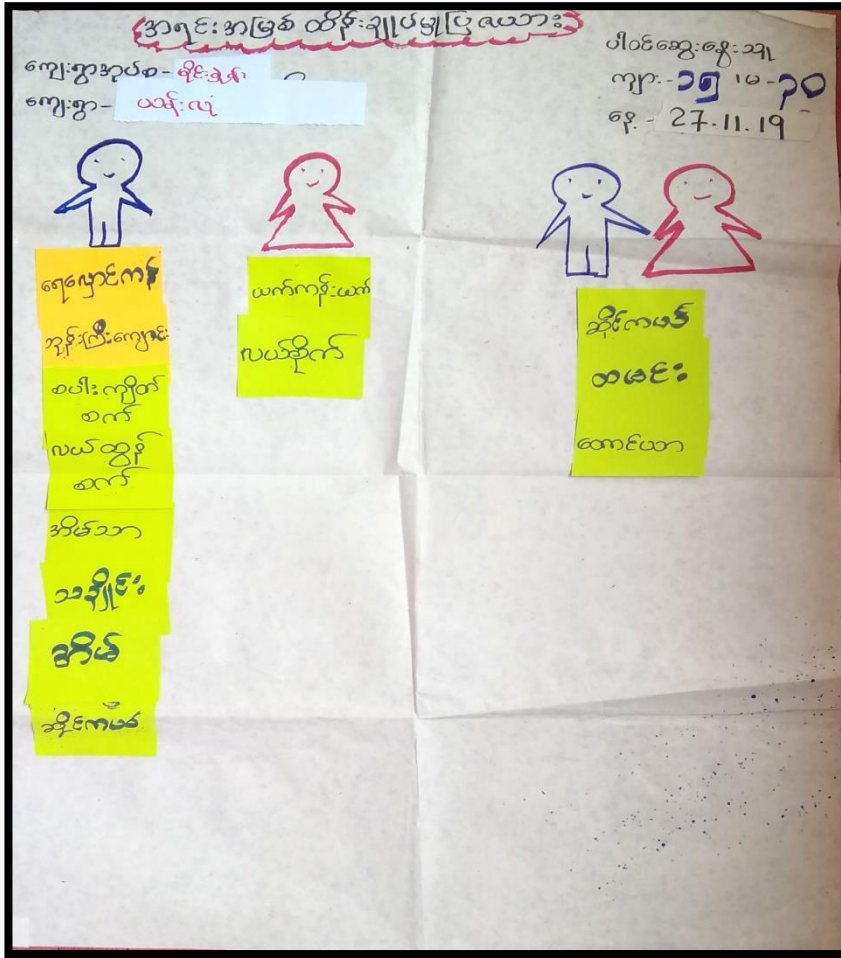 အရင်းအမြစ် ထိန်းချုပ်မှုပြဇယား
ကျေးရွာအုပ်စု -
ကျေးရွာ - ယန်းလုံ
ပါဝင်ဆွေးနွေးသူ
ကျား - ၁၅ ၊ မ - ၃၀
နေ့ - 27.11.19
ရေလှောင်ကန်
ဘုန်းကြီးကျောင်း
စပါးကြိတ်
စက်
လယ်ထွန်
စက်
အိမ်သာ
သချိုင်း
အိမ်
ဆိုင်ကယ်
ယက်ကန်းယက်
လယ်စိုက်
ဆိုင်ကယ်
ထမင်း
တောင်ယာ